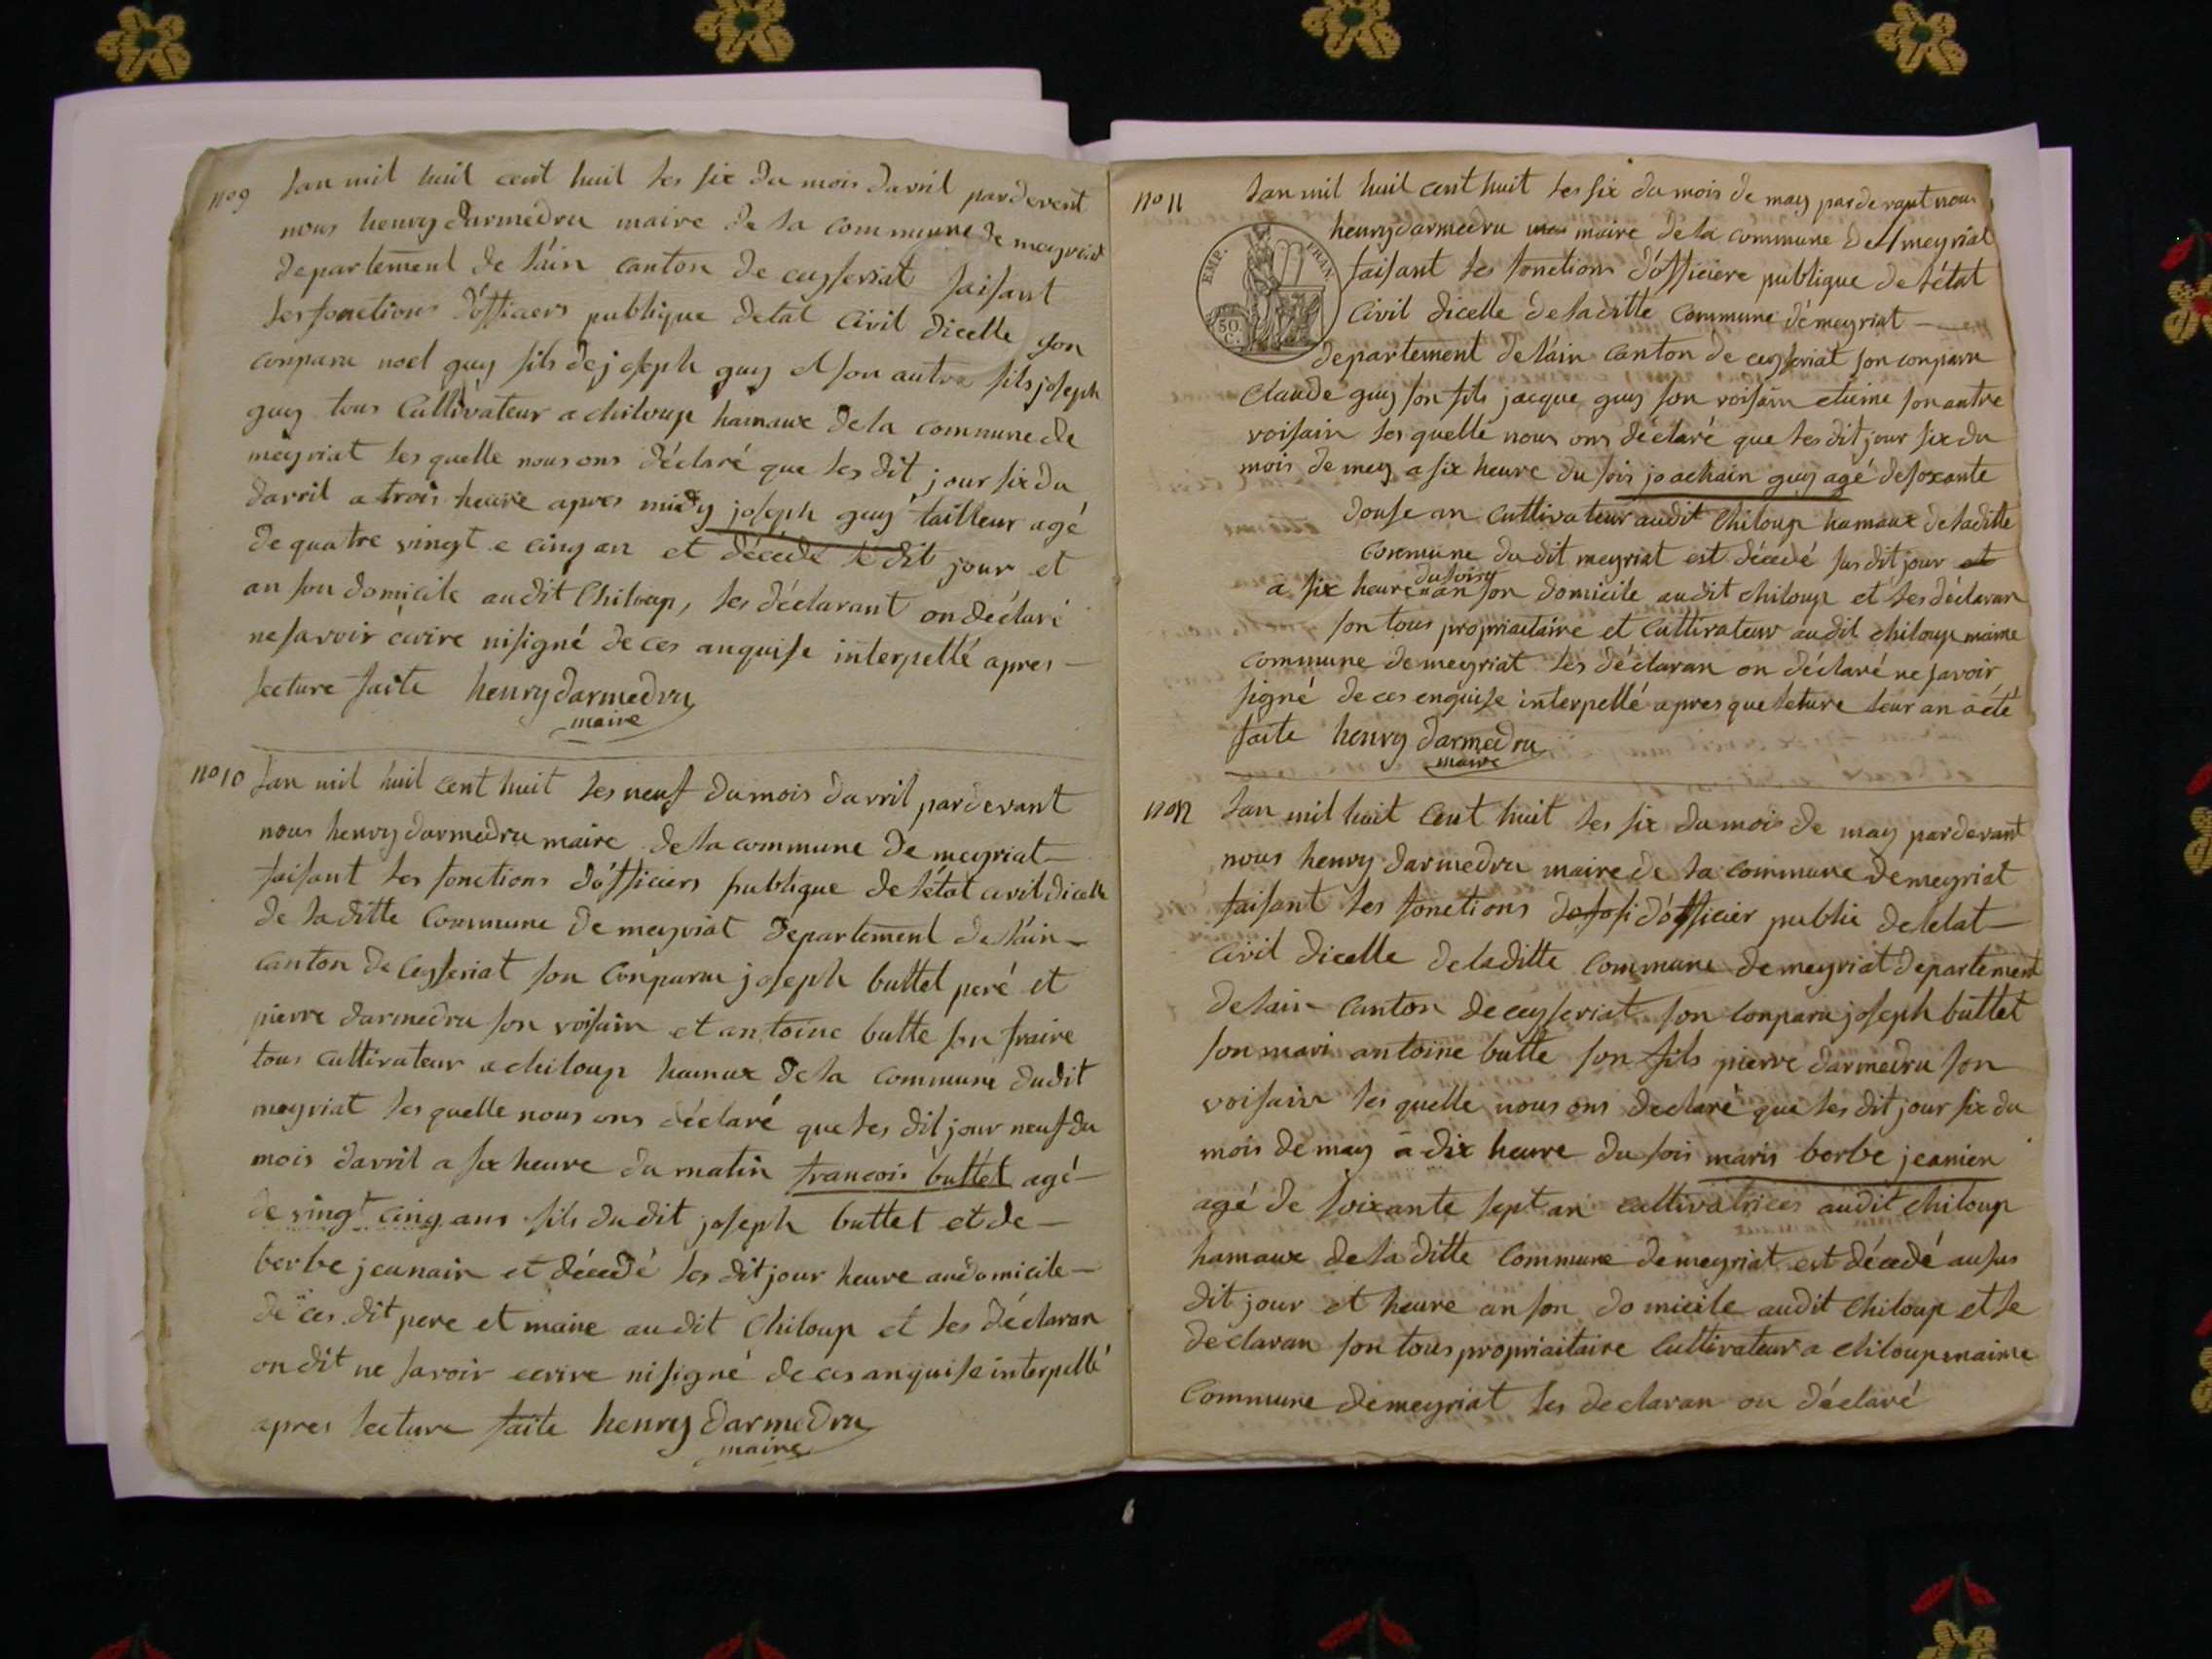 no 9
lan mil huit cent huit les six du mois davril pardevent
nous henry darmedru maire de la commune de meyriat
departement de l'ain canton de ceyseriat faisant
les fonctions d'officiers publique detat civil dicelle son
conparu noel guy fils de joseph guy et son autre fils joseph
guy tous cultivateur a chiloup hamaux de la commune de
meyriat les quelle nous ons déclaré que les dit jour six du
davril a trois heure apres midy joseph guy tailleur agé
de quatre vingt e cinq an et décedé le dit jour et
an son domicile audit Chiloup, les déclarant on déclaré
ne savoir écrire ni signé de ces anquise interpellé apres —
lecture faite henry darmedru
maire
no 10
lan mil huit cent huit les neuf du mois davril pardevant
nous henry darmedru maire de la commune de meyriat —
faisant les fonctions d'officiers publique de l'état civil dicelle
de laditte commune de meyriat departement de l'ain —
canton de ceyseriat son conparu joseph buttet peré et
pierre darmedru son voisain et antoine butte son fraire
tous cultivateur a chiloup hamaux de la commune dudit
meyriat les quelle nous ons déclaré que les dit jour neuf du
mois davril a six heure du matin francois buttet agé —
de vingt cinq ans fils du dit joseph buttet et de —
berbe jeanain et décedé les dit jour heure au domicile —
de ces dit pere et maire au dit Chiloup et les déclaran
on dit ne savoir ecrire ni signé de ces anquise interpellé
apres lecture faite henry darmedru
maire
no 11
lan mil huit cent huit les six du mois de may pardevant nous
henry darmedru maire de la commune de meyriat
faisant les fonctions d'officiere publique de l'état
civil dicelle de laditte commune de meyriat —
departement de l'ain canton de ceyseriat son conparu
Claude guy son fils jacque guy son voisain etieine son autre
voisain les quelle nous ons déclaré que les dit jour six du
mois de mey a six heure du sois joachain guy agé de soxante
douse an cultivateur audit Chiloup hamaux de laditte
commune du dit meyriat est décedé sus dit jour et
a six heure du soiry an son domicile audit chiloup et les déclaran
son tous propriaitaire et cultivateur au dit chiloup maime
commune de meyriat les déclaran on déclaré ne savoir
signé de ces enquise interpellé apres que leture leur an a été
faite henry darmedru
maire
EMP. FRAN.
50 C.
no 12
lan mil huit cent huit les six du mois de may pardevant
nous henry darmedru maire de la commune de meyriat
faisant les fonctions d'officier public de letat —
civil dicelle de laditte commune de meyriat departement
de lain canton de ceyseriat son conparu joseph buttet
son mari antoine butte son fils pierre darmedru son
voisain les quelle nous ons declaré que les dit jour six du
mois de may a dix heure du sois maris berbe jeanien
agé de soixante sept an cultivatrices audit chiloup
hamaux de la ditte commune de meyriat est décedé au sus
dit jour et heure an son domicile audit Chiloup et le
declaran son tous propriaitaire cultivateur a chiloup maime
commune de meyriat les declaran on déclaré